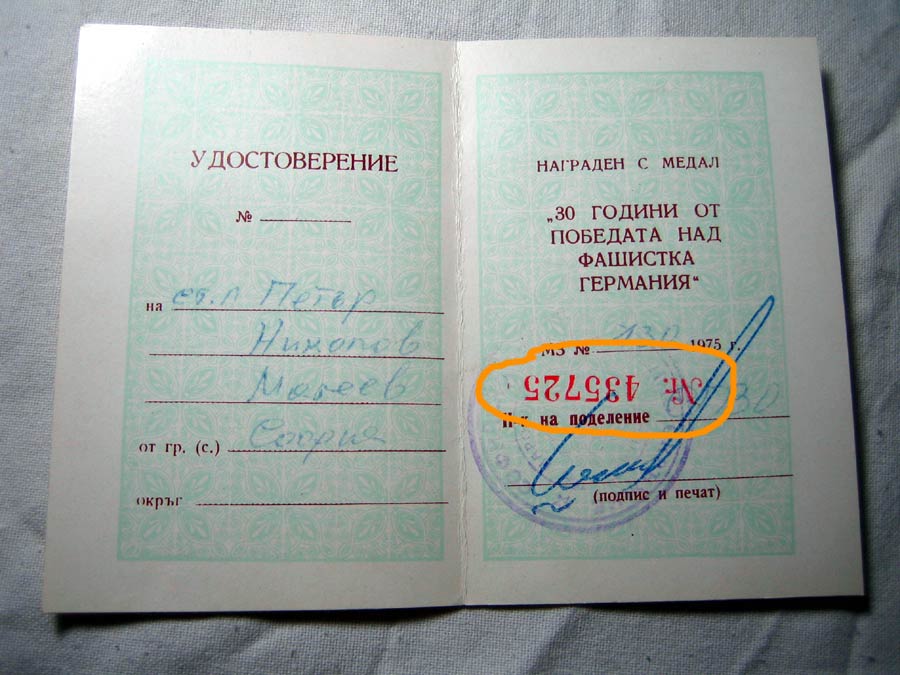 УДОСТОВЕРЕНИЕ
№
на ст. л Петър
Николов
Матеев
от гр. (с.) София
окръг
НАГРАДЕН С МЕДАЛ
„30 ГОДИНИ ОТ
ПОБЕДАТА НАД
ФАШИСТКА
ГЕРМАНИЯ“
МЗ № 1975 г.
Nr. 435725
Н-к на поделение
(подпис и печат)